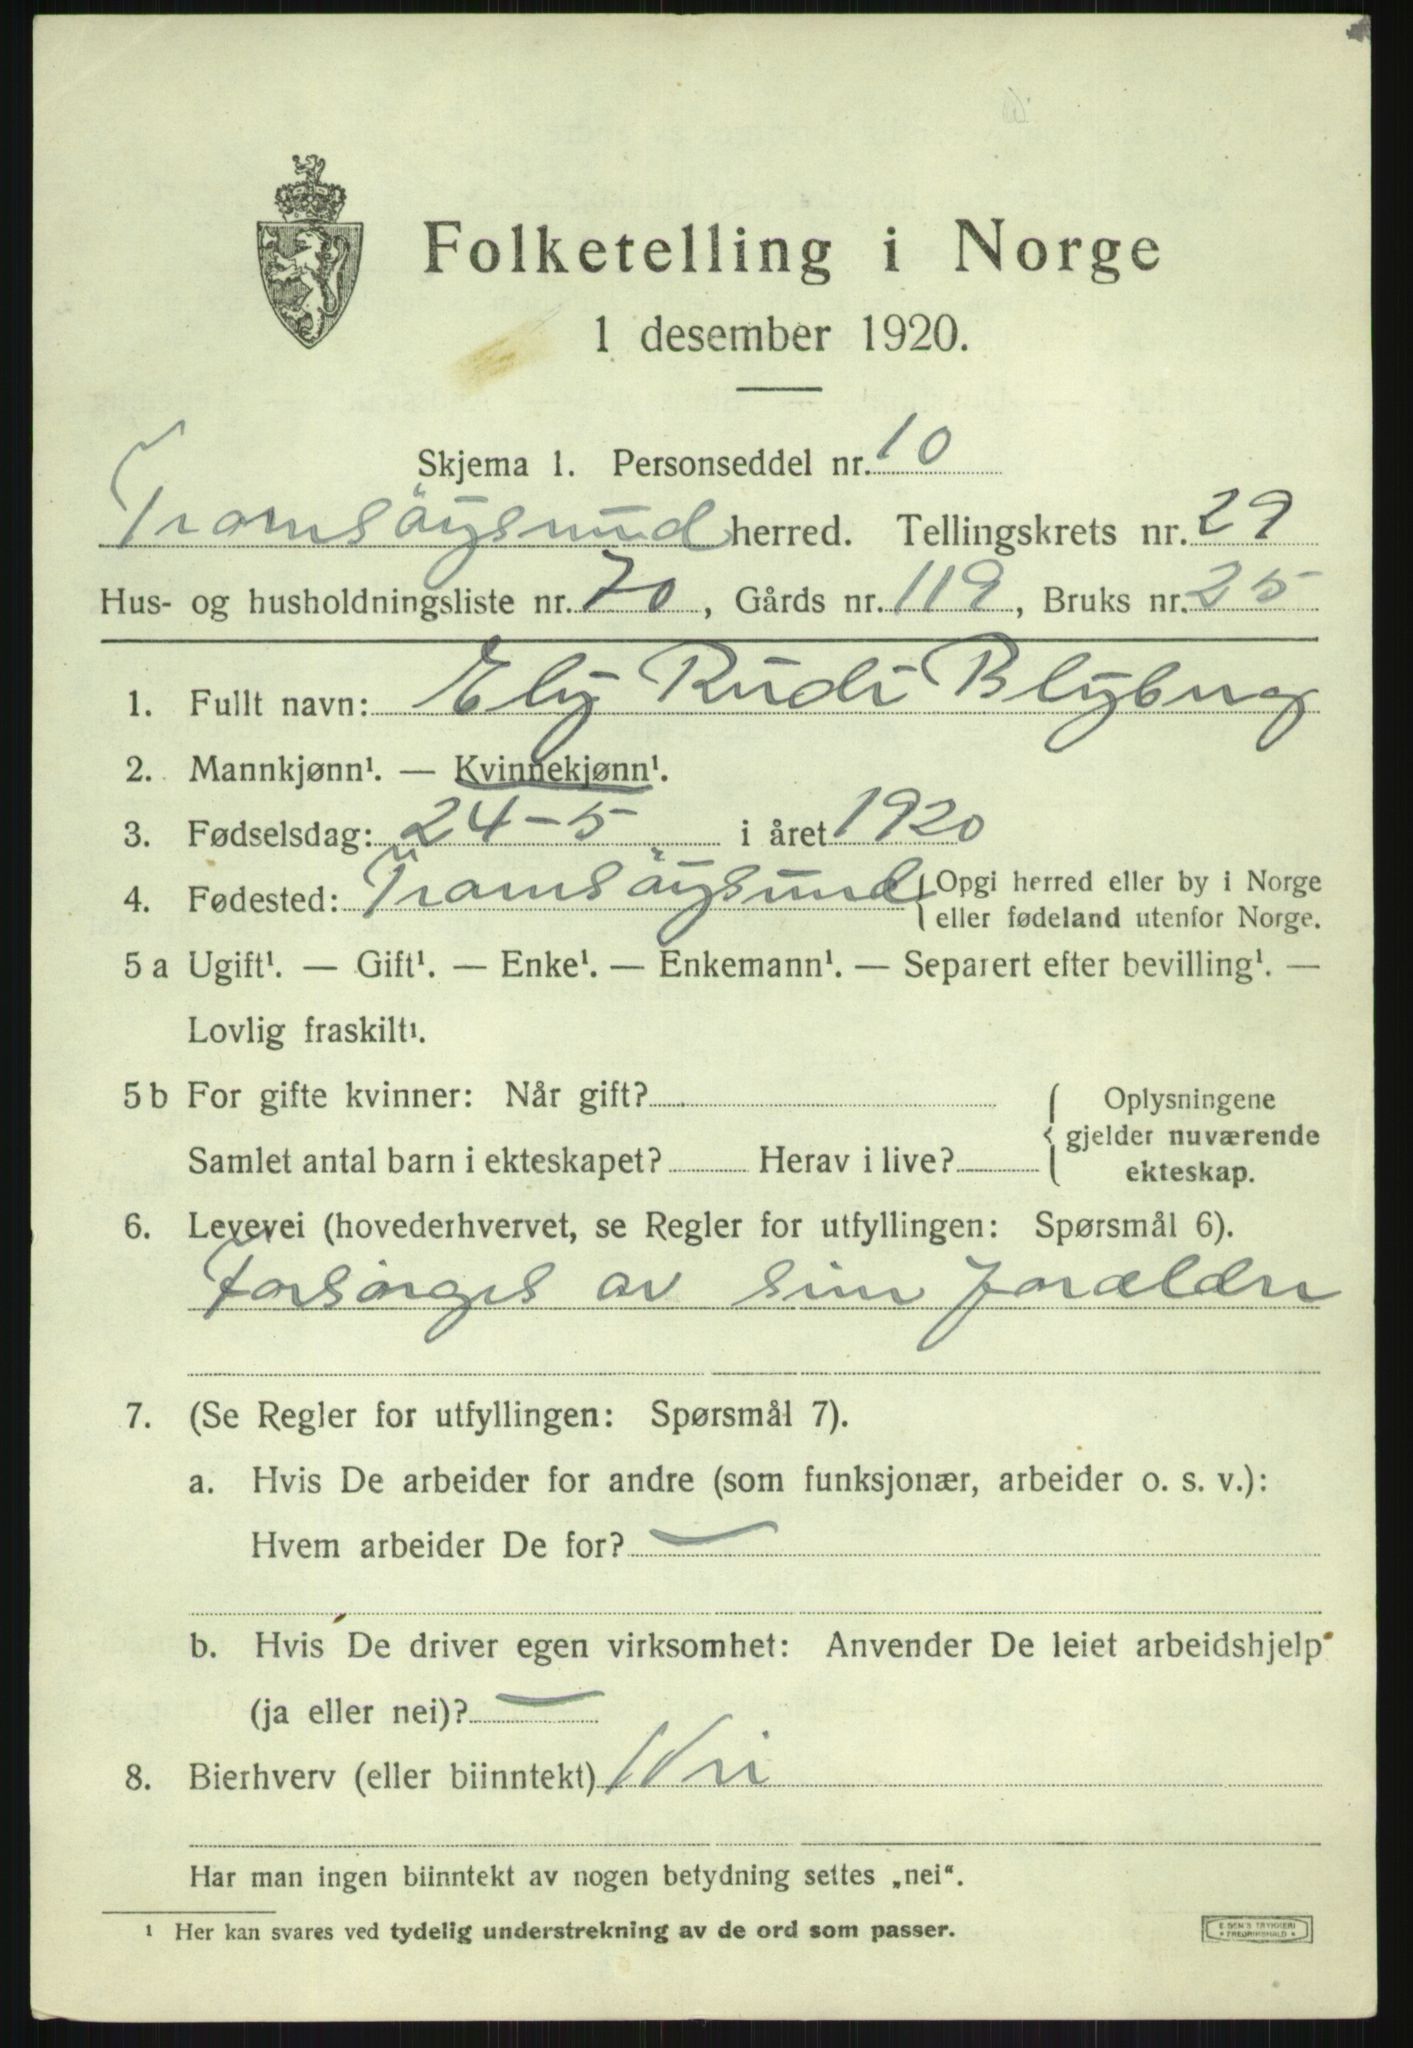 Folketelling i Norge
1 desember 1920.
Skjema 1. Personseddel nr. 10
Tromsöysund herred. Tellingskrets nr. 29
Hus- og husholdningsliste nr. 70, Gårds nr. 119, Bruks nr. 25
1. Fullt navn: Ely Rudi Blyberg
2. Mannkjønn¹. — Kvinnekjønn¹.
3. Fødselsdag: 24-5 i året 1920
4. Fødested: Tromsöysund { Opgi herred eller by i Norge
eller fødeland utenfor Norge.
5 a Ugift¹. — Gift¹. — Enke¹. — Enkemann¹. — Separert efter bevilling¹. —
Lovlig fraskilt¹.
5 b For gifte kvinner: Når gift?
Samlet antal barn i ekteskapet? Herav i live?
{ Oplysningene
gjelder nuværende
ekteskap.
6. Levevei (hovederhvervet, se Regler for utfyllingen: Spørsmål 6).
Forsörges av sine forældre
7. (Se Regler for utfyllingen: Spørsmål 7).
a. Hvis De arbeider for andre (som funksjonær, arbeider o. s. v.):
Hvem arbeider De for? —
b. Hvis De driver egen virksomhet: Anvender De leiet arbeidshjelp
(ja eller nei)? —
8. Bierhverv (eller biinntekt) Nei
Har man ingen biinntekt av nogen betydning settes „nei“.
¹ Her kan svares ved tydelig understrekning av de ord som passer.
E. SEM'S TRYKKERI
* FREDRIKSHALD *